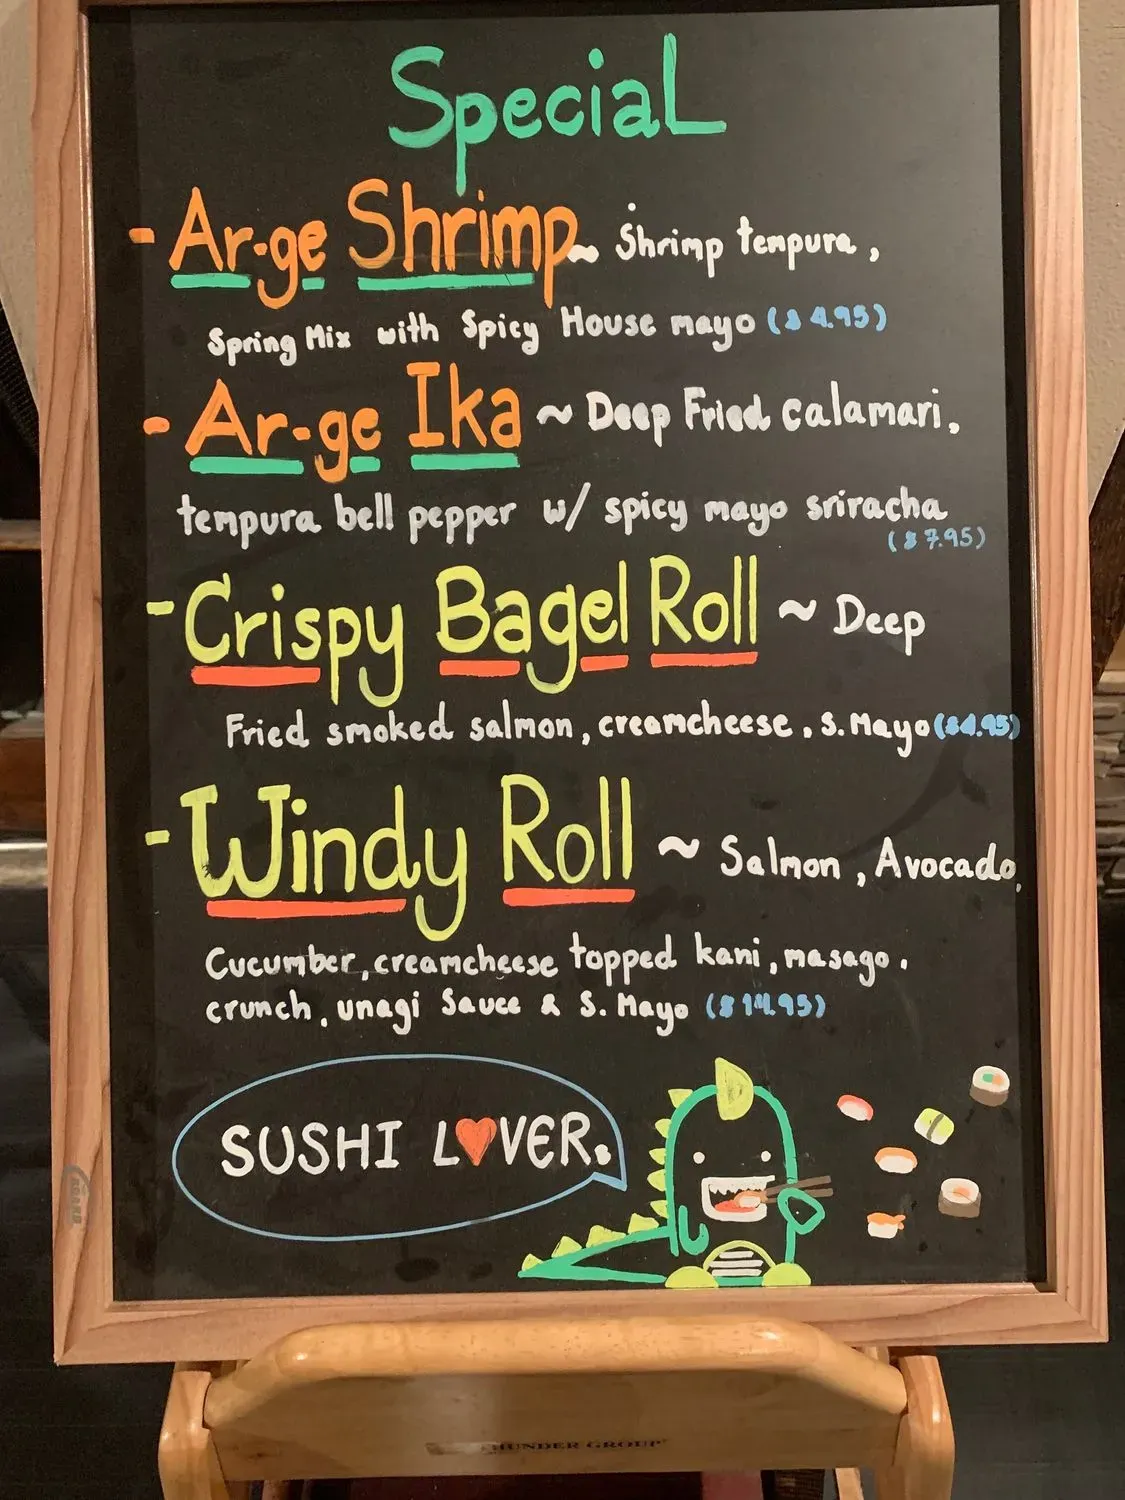 Special
- Ar-ge Shrimp ~ Shrimp tempura,
Spring Mix with Spicy House mayo ($4.95)
- Ar-ge Ika ~ Deep Fried calamari,
tempura bell pepper w/ spicy mayo sriracha
($7.95)
- Crispy Bagel Roll ~ Deep
Fried smoked salmon, creamcheese, S. Mayo ($4.95)
- Windy Roll ~ Salmon, Avocado,
Cucumber, creamcheese topped kani, masago,
crunch, unagi Sauce & S. Mayo ($14.95)
SUSHI L♥VER.
THUNDER GROUP